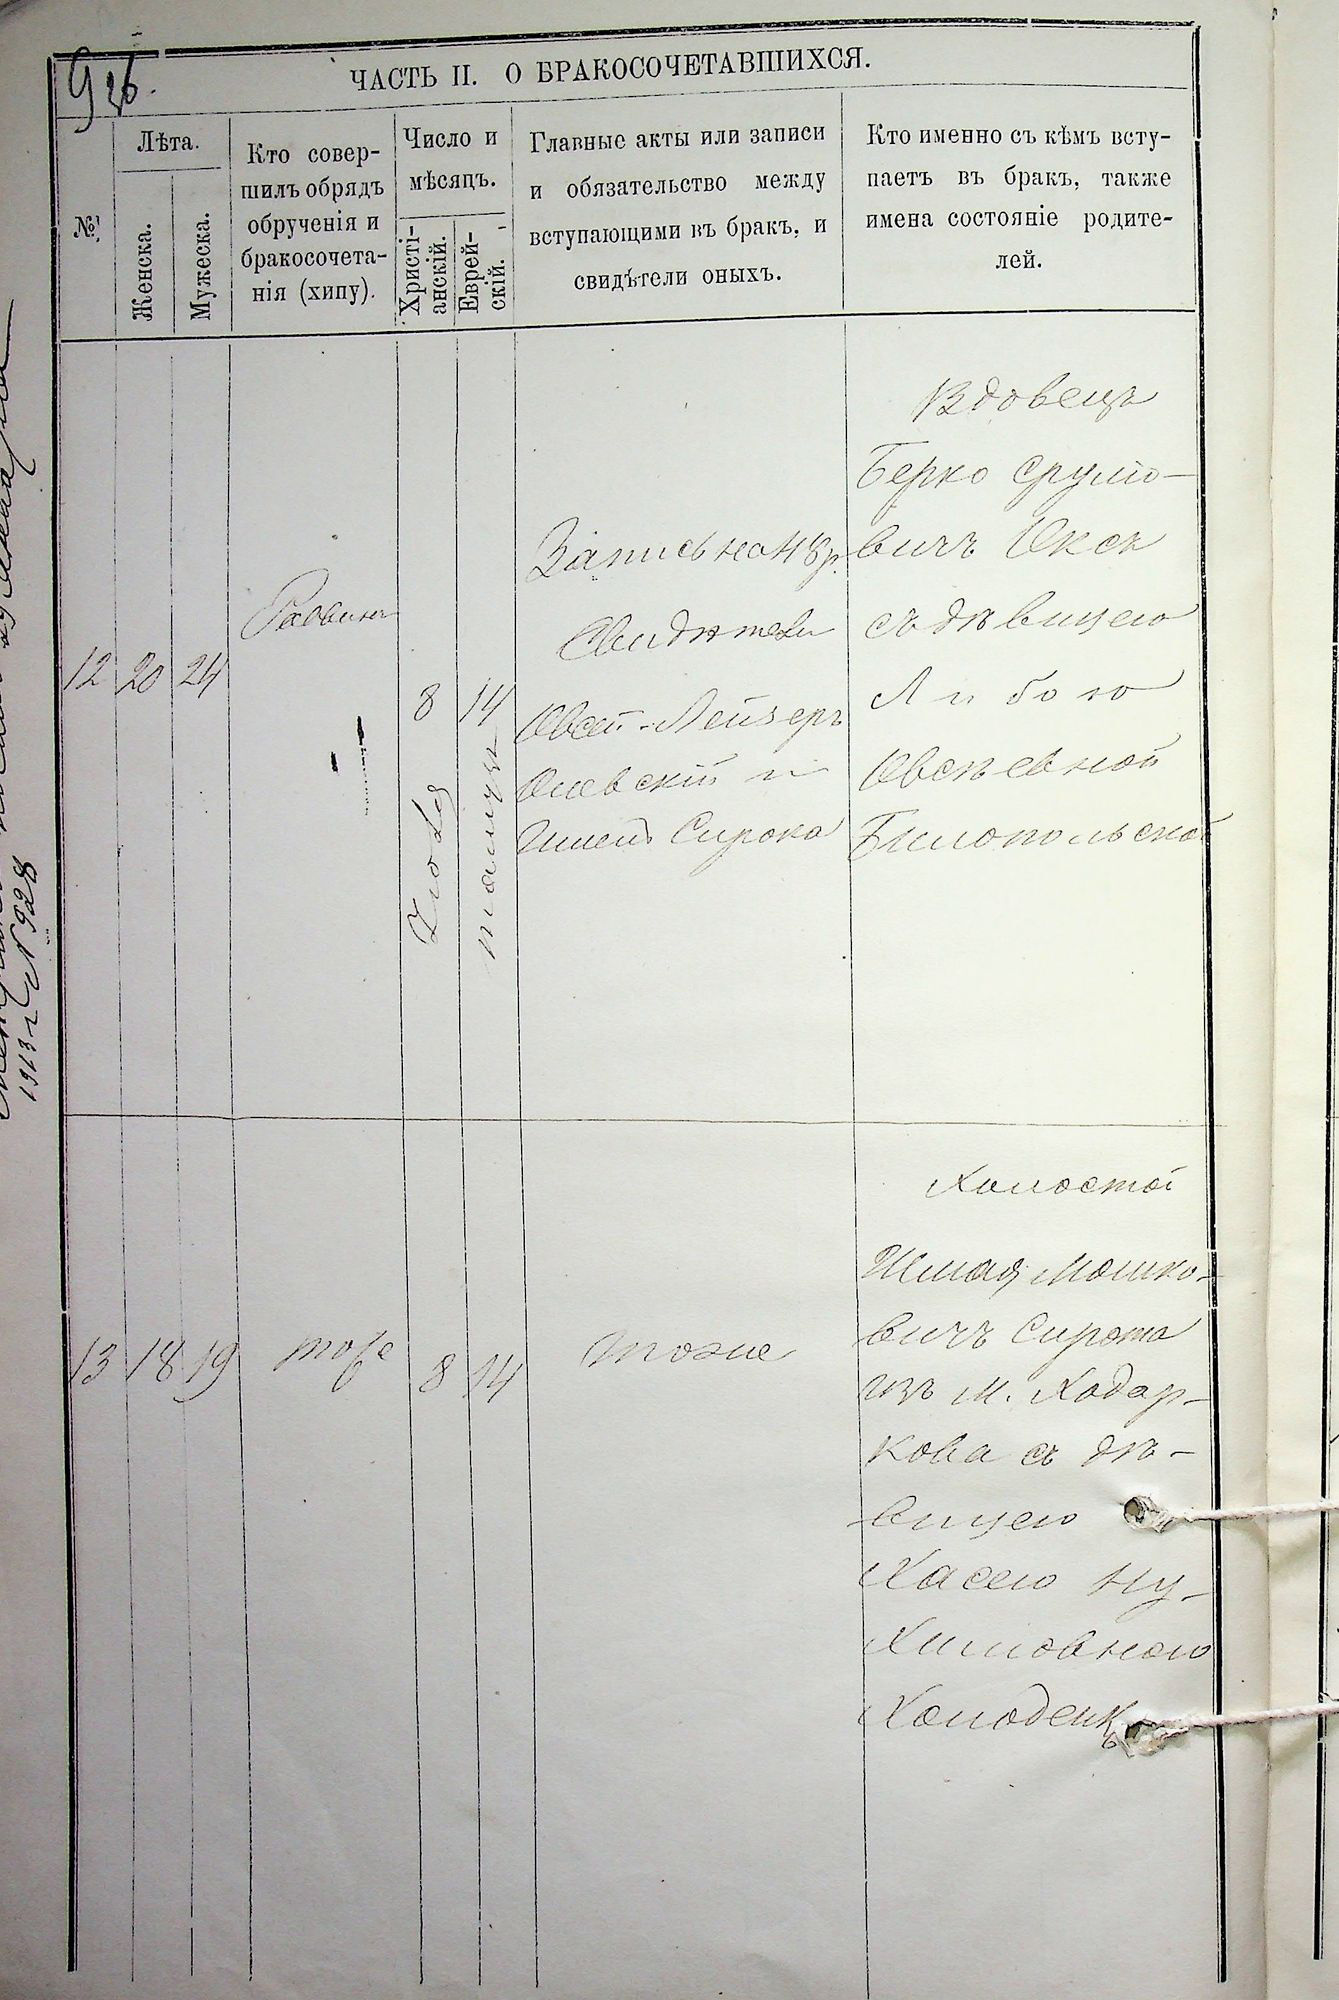 926.
ЧАСТЬ II. О БРАКОСОЧЕТАВШИХСЯ.
№
Лѣта.
Женска.
Мужеска.
Кто совер-
шилъ обрядъ
обрученія и
бракосочета-
нія (хипу).
Число и
мѣсяцъ.
Христі-
анскій.
Еврей-
скій.
Главные акты или записи
и обязательство между
вступающими въ бракъ, и
свидѣтели оныхъ.
Кто именно съ кѣмъ всту-
паетъ въ бракъ, также
имена состояніе родите-
лей.
12
20
24
Раввинъ
8
Іюля
14
Тамузъ
Запись на 48 р.
Свидѣтели
Овсей-Лейзеръ
и
Сирота
Вдовецъ
Берко Срулío-
вичъ Оксъ
съ дѣвицею
Либою
Овсѣевной
Билопольской
13
18
19
тоже
8
14
тоже
Холостой
Шмая Мошко-
вичъ Сирота
изъ м. Ходор-
кова съ дѣ-
вицею
Хасею Ну-
химовною
Холоденк
1913 г. № 928